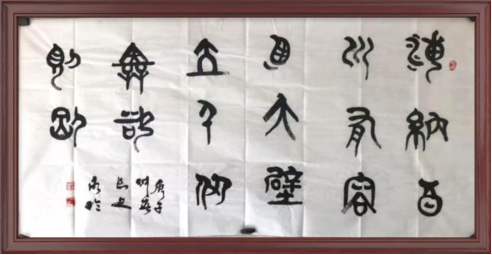 海納百
川有容
乃大壁
立千仞
無欲
則剛
庚子